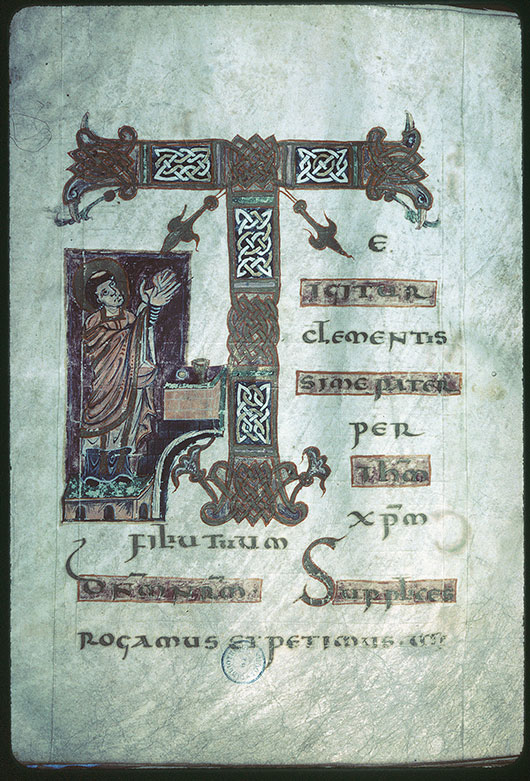 TE
IGITUR
CLEMENTIS
SIME PATER
PER
IHM̅
XPM̅
FILIU TUUM
DNM̅ NRM̅ Supplices
ROGAMUS ET PETIMUS.